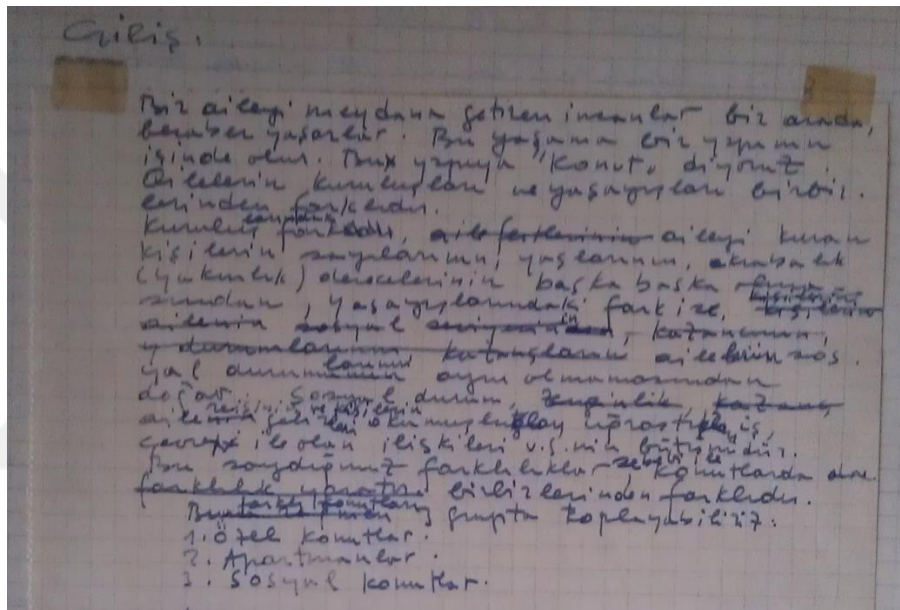 Giriş.
Bir aileyi meydana getiren insanlar bir arada,
beraber yaşarlar. Bu yaşama bir yapının
içinde olur. Bu yapıya "Konut" diyoruz.
Ailelerin kuruluşları ve yaşayışları birbir-
lerinden farklıdır.
Kuruluş farkı, aile fertlerinin aileyi kuran
kişilerin sayılarının, yaşlarının, akrabalık
(yakınlık) derecelerinin başka başka
sından, yaşayışlarındaki fark ise, kişilerin
ailenin sosyal kazancının,
durumlarının kazançların ailelerin sos-
yal durumlarının aynı olmamasından
doğar. Sosyal durum, zenginlik, kazanç,
aile okumuşluğu uğraştığı iş,
çevre ile olan ilişkileri v.s. nin bütünüdür.
Bu saydığımız farklılıklar konutlarda da
farklılık yaratır birbirlerinden farklıdır.
farklı konutları grupta toplayabiliriz:
1. Özel konutlar.
2. Apartmanlar.
3. Sosyal konutlar.